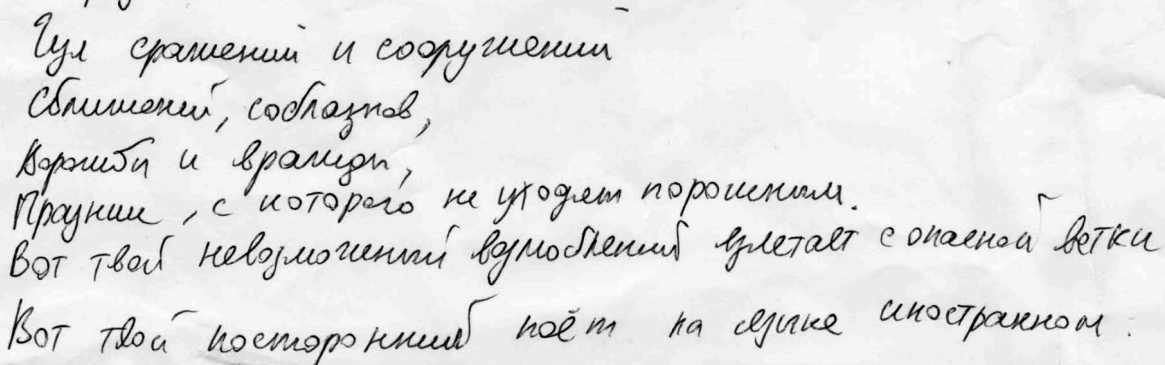 Гул сражений и сооружений
Сближений, соблазнов,
Ворожбы и вражды,
Праздник, с которого не уходят порожним.
Вот твой невозможный возлюбленный взлетает с опасной ветки
Вот твой посторонний поёт на языке иностранном.